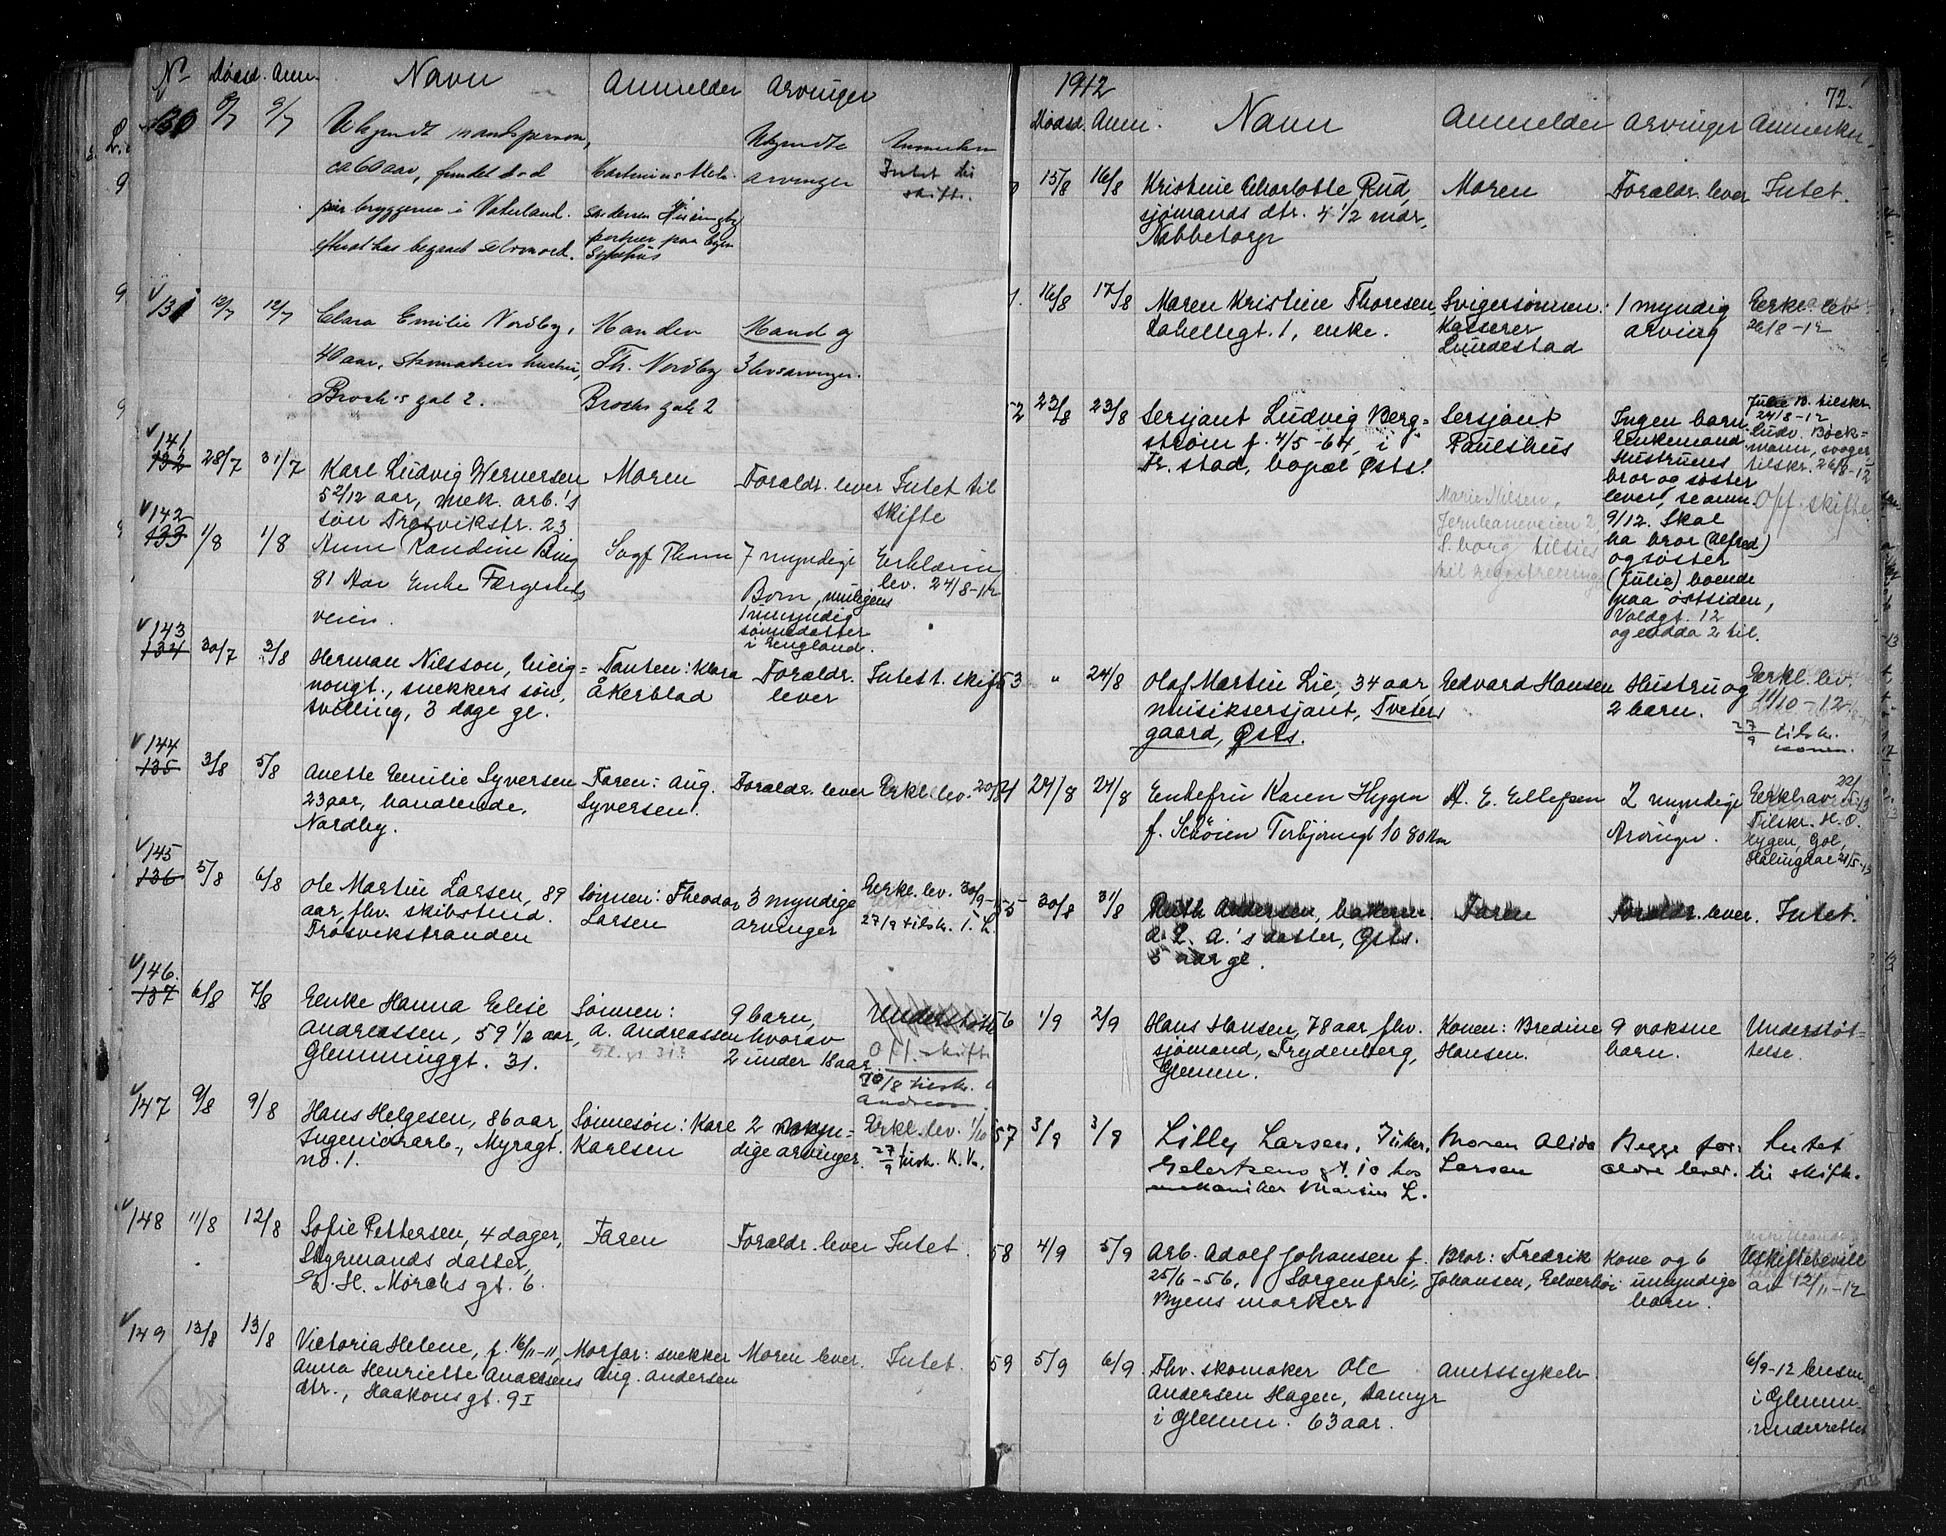 No Dødsd. Anm. Navn Anmelder Arvinger
130 9/7 9/7 Ukjendt mandsperson,
ca 60 aar, fundet død
ved bryggerne i Vaterland.
Ukjendte
arvinger
Intet til
skifte.
131 10/7 12/7 Clara Emilie Nordby,
40 aar, skomakers hustru,
Brochs gat 2.
Manden
Th. Nordby
Brochs gate 2
Mand og
3 livsarvinger.
141
132 28/7 31/7 Karl Ludvig Wernersen
5 2/12 aar, mek. arb.'s
søn Trosvikstr. 23
Moren
Foraldr. lever
Intet til
skifte
142
133 1/8 1/8 Anne Randine Bing
81 Aar Enke Færgesteds
veien.
Sagf Thom
7 myndige
Born, muligens
1 umyndig
sønnedatter
i England.
Erklæring
lev. 24/8-12
143
134 30/7 3/8 Herman Nilsson, Enig=
hougt., snekkers søn,
tvilling, 3 dage gl.
Tanten: Klara
Åkerblad
Foraldr.
lever
Intet t. skifte
144
135 3/8 5/8 Anette Emilie Syversen
23 aar, handlende,
Nordby.
Faren: Aug.
Syversen.
Foraldr. lever
Erkl. lev. 20/8
145
136 5/8 6/8 Ole Martin Larsen, 89
aar, fhv. skibstmd.
Trosvikstranden
Sønnen: Theodor
Larsen
3 myndige
arvinger
Erkl. lev. 30/9-
27/9 tilsk. T. L.
146.
137 6/8 7/8 Enke Hanna Elise
Andreassen, 59 1/2 aar,
Glemminggt. 31.
Sønnen:
A. Andreassen
Gl. gt. 313
9 barn,
hvorav
2 under 18 aar.
Understøtt
Off. skifte
10/8 tilsk.
Andreas.
147 9/8 9/8 Hans Helgesen, 86 aar,
Ingeniørarb., Myragt.
no. 1.
Sønnesøn: Karl
Karlsen
2 myn=
dige arvinger.
Erkl. lev. 1/10
27/9 tilsk. K. K.
148 11/8 12/8 Sofie Pettersen, 4 dager,
Styrmands datter,
H. Mørchs gt. 6.
Faren
Foraldr. lever
Intet.
149 13/8 13/8 Victoria Helene, f. 16/11-11,
Anna Henriette Andersens
dtr., Haakons gt. 9 I
Morfar: snekker
Aug. Andersen
Moren lever.
Intet.
1912
72.
Dødsd. Anm. Navn Anmelder Arvinger Anmerkn.
15/8 16/8 Kristine Charlotte Rud,
sjømands dtr. 4 1/2 mdr.,
Nabbetorp
Moren
Foraldr. lever
Intet.
16/8 17/8 Maren Kristine Thoresen,
Labellegt. 1, enke.
Svigersønnen:
Kasserer
Lundestad
1 myndig
arving
Erkl. lev
26/8-12
52 23/8 23/8 Sersjant Ludvig Berg=
strøm f. 4/5-64, i
Fr. stad, bopæl Østs.
Sersjant
Paulshus
Marie Nilsen,
Jernbaneveien 2
S. borg tilsies
til registrering
Ingen barn
Enkemand
Hustruens
bror og søster
lever, se anm.
9/12. Skal
ha bror (Alfred)
og søster
(Julie) boende
paa østsiden,
Voldgt. 12
og endda 2 til.
Julie B. tilskr.
24/8-12
Ludv. Bøck=
mann, svoger,
tilskr. 26/8-12
Off. skifte
53 " 24/8 Olaf Martin Lie, 34 aar
musiksersjant, Tveter
gaard, Østs.
Edvard Hansen
Hustru og
2 barn.
Erkl. lev.
11/10-12
27/9 tilsk.
konen.
24/8 24/8 Enkefru Karen Hygen
f. Schøien Torbjørnsgt 10 80 Aar
A. E. Ellefsen
2 myndige
Arvinger.
Erkl. av 22/5-13
Tilskr. H. O.
Hygen, Gol,
Halingdal 21/5-13
55 30/8 31/8 Ruth Andersen, bakerm.
A. L. A.'s datter, Østs.
5 aar gl.
Faren
Foraldr. lever.
Intet.
56 1/9 2/9 Hans Hansen, 78 aar, fhv.
sjømand, Frydenberg,
Glemm.
Konen: Bredine
Hansen.
9 voksne
barn.
Understøt=
telse.
57 3/9 3/9 Lilly Larsen, 7 uker,
Gelertsens gt. 10 hos
mekaniker Marius L.
Moren Alida
Larsen
Begge for=
ældre lever.
Intet
til skifte.
58 4/9 5/9 Arb. Adolf Johansen f.
25/6-56, Sorgenfri,
Byens marker
Bror: Fredrik
Johansen, Edverhøi
Kone og 6
umyndige
barn.
Uskiftebevill
av 12/11-12
59 5/9 6/9 Fhv. skomaker Ole
Andersen Hagen, Damyr
i Glemm. 63 aar.
Amtssykeh.
6/9-12 lensm.
i Glemm.
underrettet